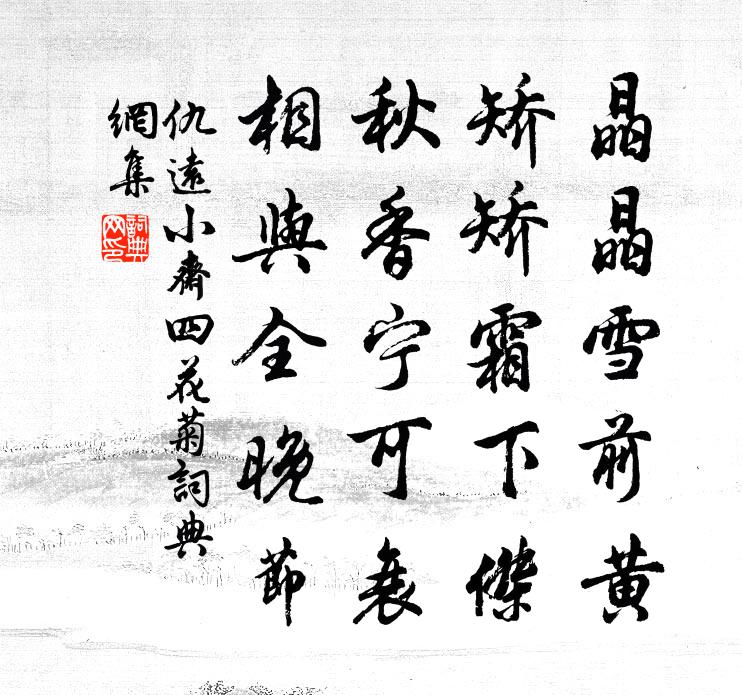 晶晶雪前黄
矫矫霜下傑
秋香宁可衰
相與全晚節
仇遠小齋四花菊詞典
網集
詞典網印